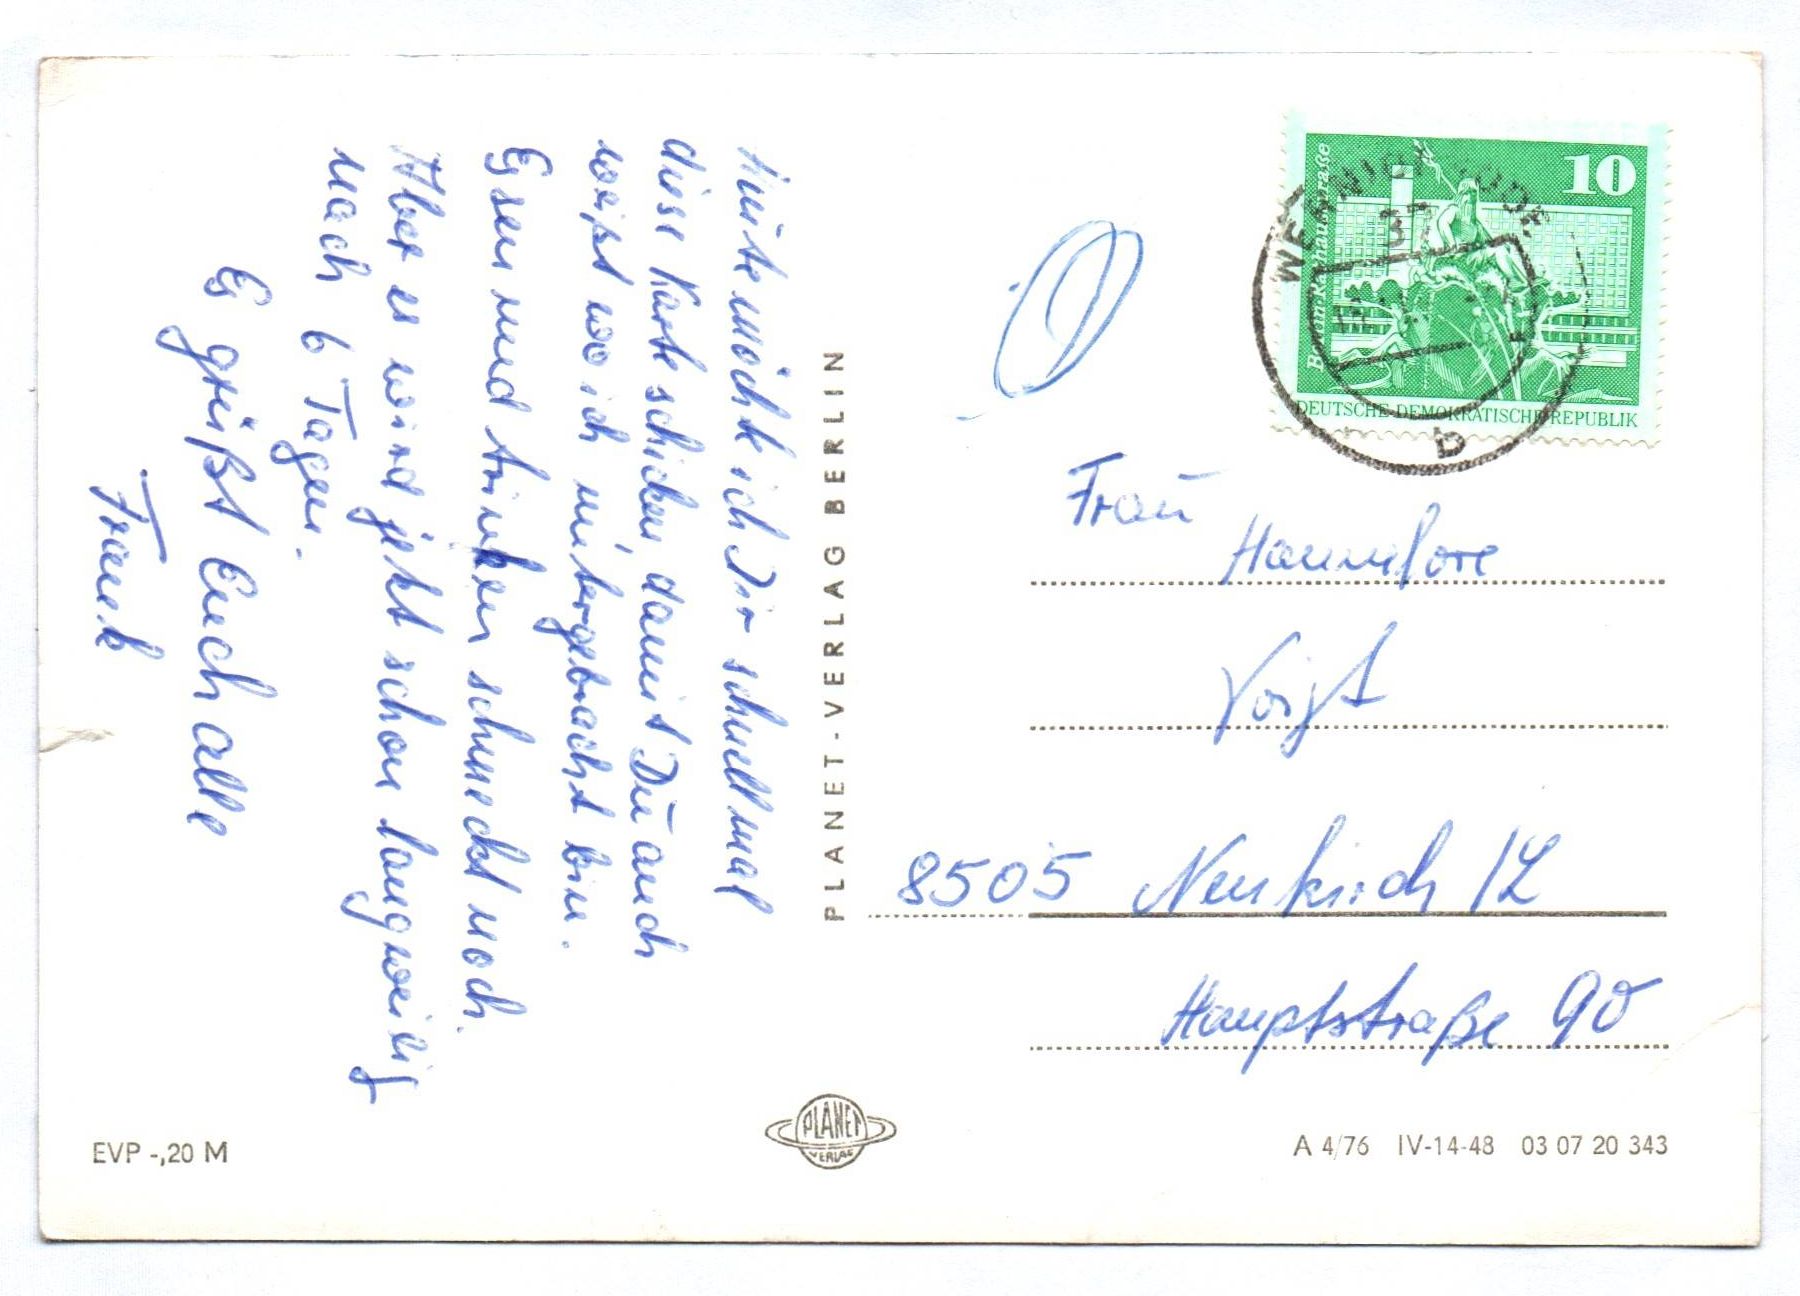 Heute möchte ich Dir schnell mal
diese Karte schicken, damit Du auch
weißt wo ich untergebracht bin.
Essen und trinken schmeckt noch.
Aber es wird jetzt schon langweilig
nach 6 Tagen.
Es grüßt Euch alle
Frank
PLANET-VERLAG BERLIN
10
Berlin, Rathausstraße
DEUTSCHE DEMOKRATISCHE REPUBLIK
b
Frau
Hannelore
Voigt
8505 Neukirch /L
Hauptstraße 90
EVP -,20 M
PLANET
VERLAG
A 4/76 IV-14-48 03 07 20 343